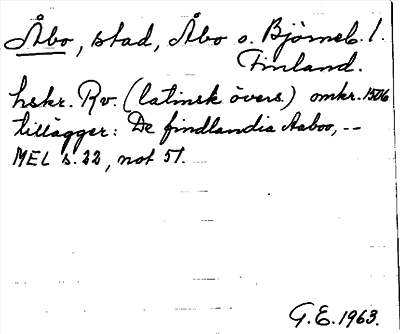 Åbo, stad, Åbo o. Bjørneb. l.
Finland.
hskr. Rv. (latinsk övers.) omkr. 1506
tillägger: De findlandia Aaboo, --
MEL s. 22, not 51.
G.E. 1963.